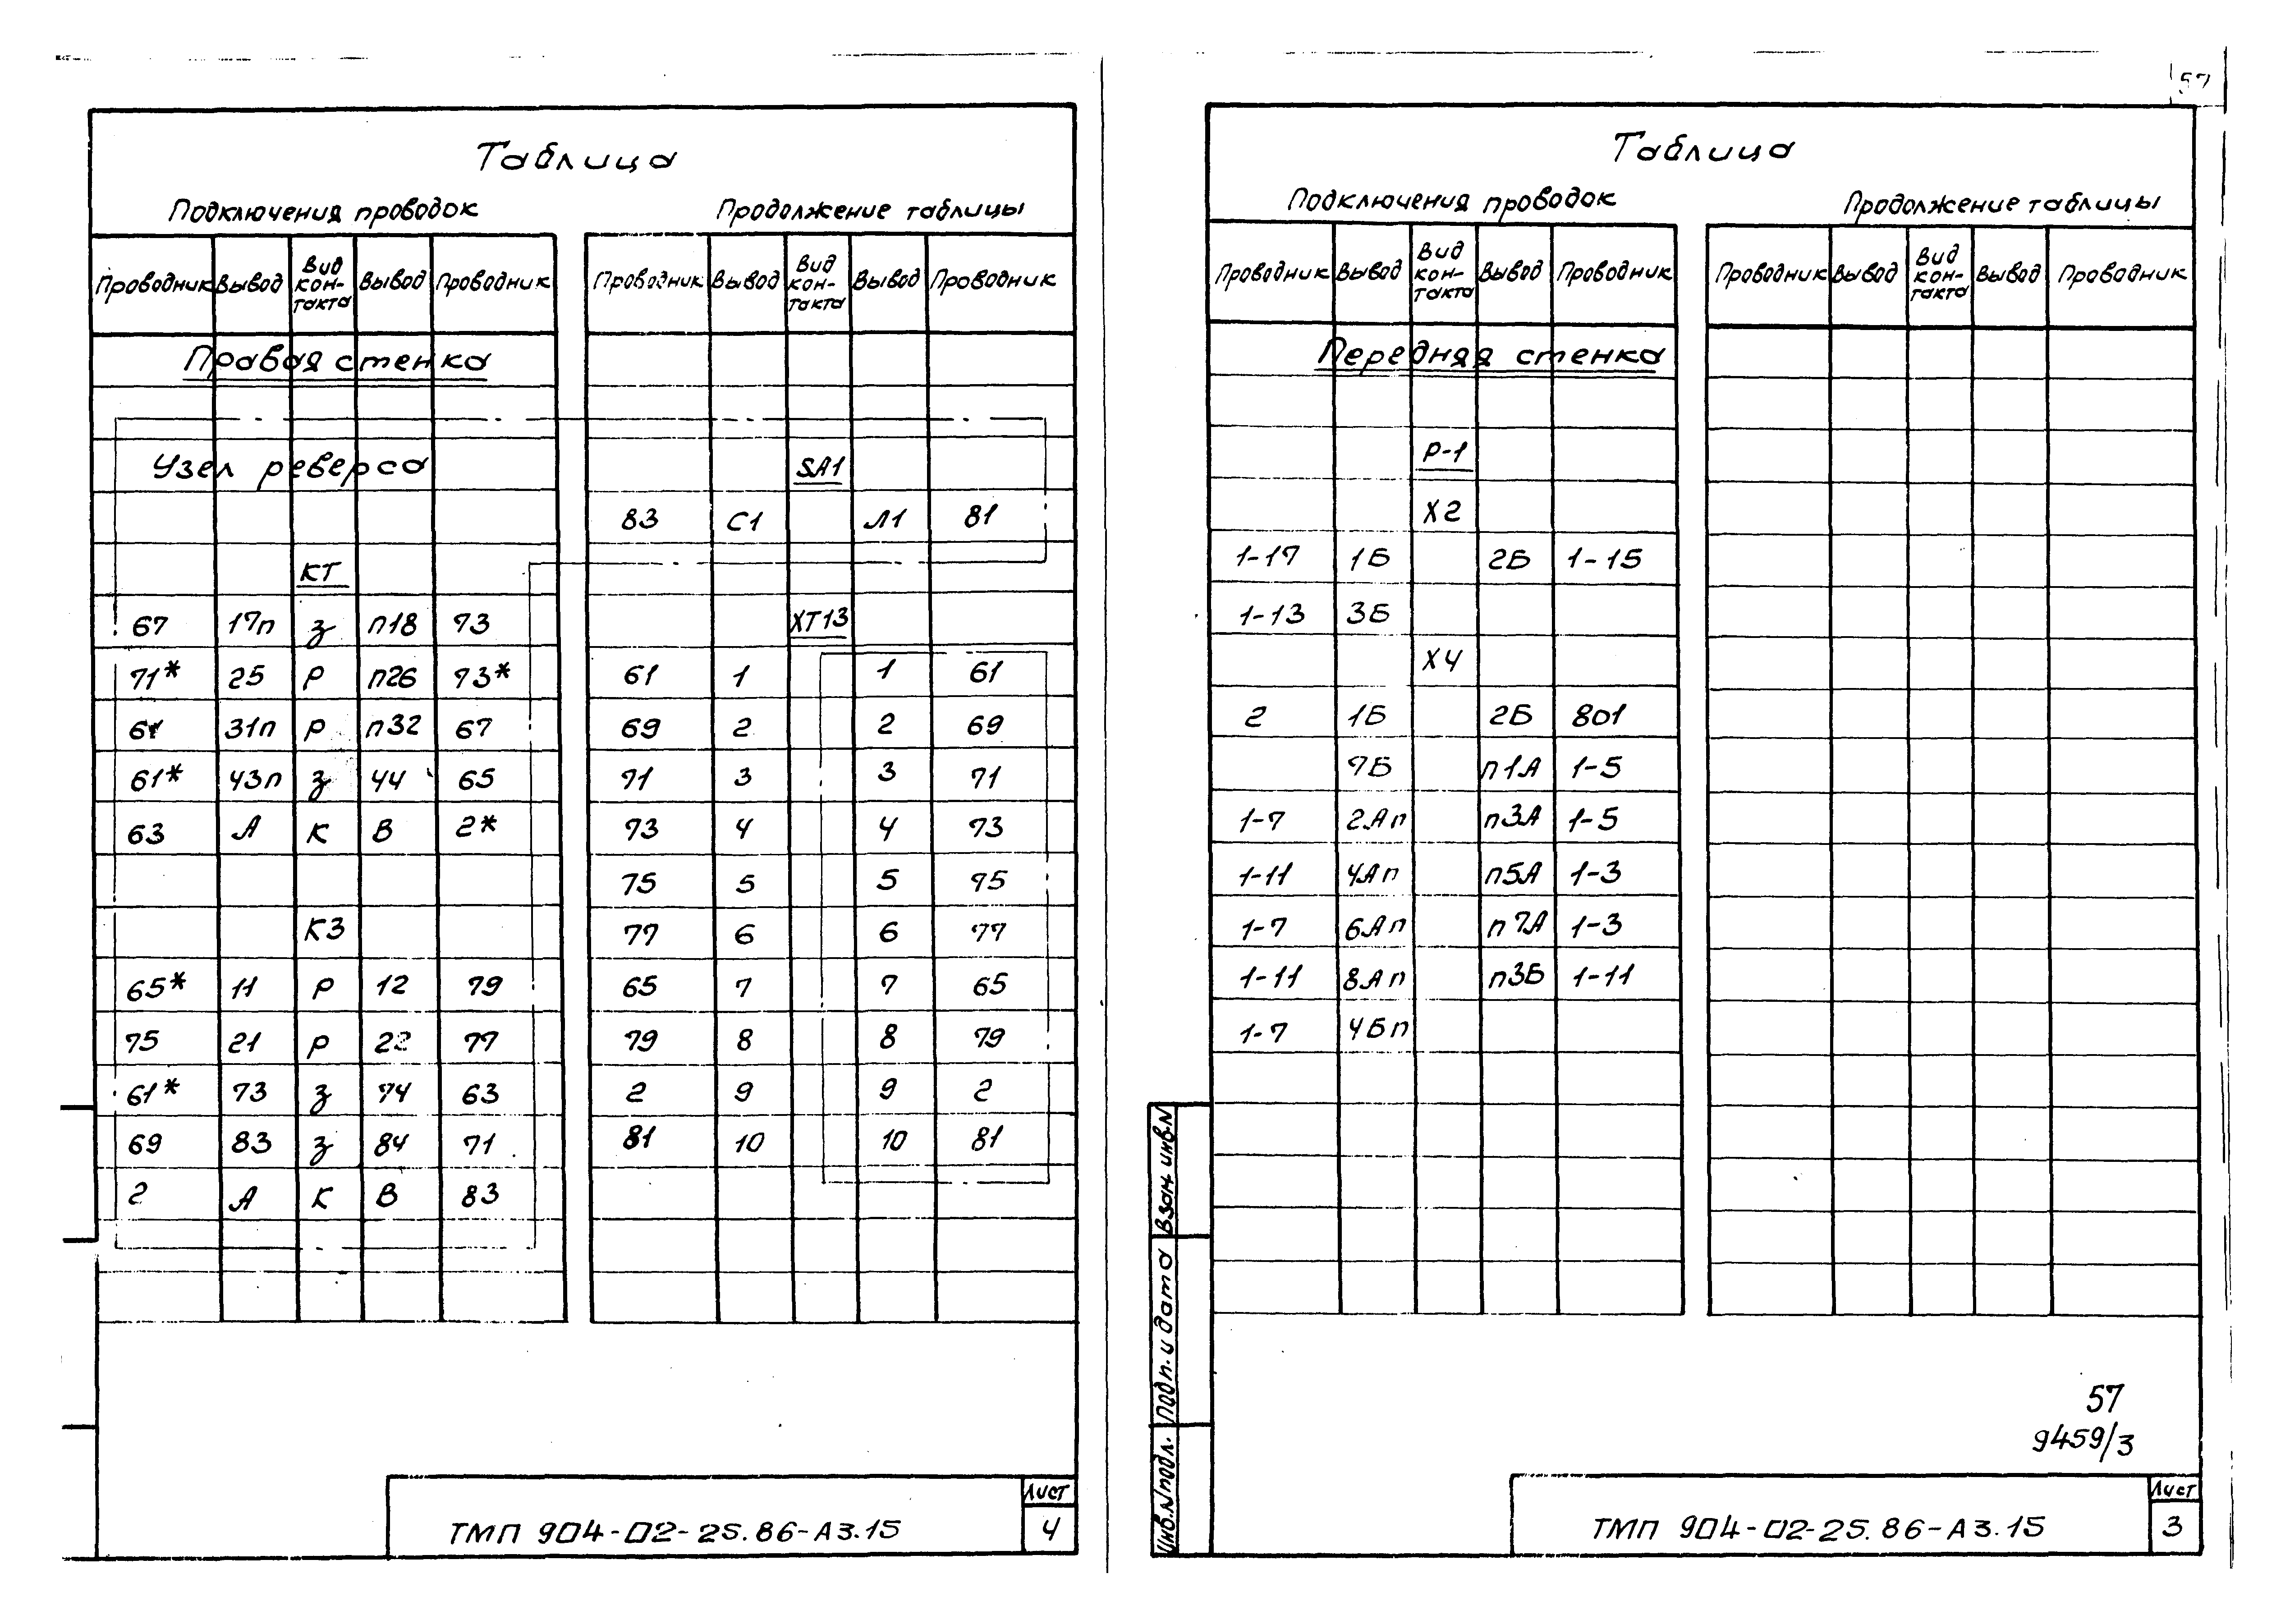 Таблица
Подключения проводок
Проводник Вывод Вид кон-такта Вывод Проводник
Правая стенка
Узел реверса
КТ
67 17п з п18 73
71* 25 р п26 73*
61 31п р п32 67
61* 43п з 44 65
63 А К В 2*
К3
65* 11 р 12 79
75 21 р 22 77
61* 73 з 74 63
69 83 з 84 71
2 А К В 83
Продолжение таблицы
Проводник Вывод Вид кон-такта Вывод Проводник
SA1
83 С1 Л1 81
ХТ13
61 1 1 61
69 2 2 69
71 3 3 71
73 4 4 73
75 5 5 75
77 6 6 77
65 7 7 65
79 8 8 79
2 9 9 2
81 10 10 81
ТМП 904-02-25.86-А3.15
Лист
4
57
Таблица
Подключения проводок
Проводник Вывод Вид кон-такта Вывод Проводник
Передняя стенка
Р-1
Х2
1-17 1Б 2Б 1-15
1-13 3Б
Х4
2 1Б 2Б 801
7Б п1А 1-5
1-7 2Ап п3А 1-5
1-11 4Ап п5А 1-3
1-7 6Ап п7А 1-3
1-11 8Ап п3Б 1-11
1-7 4Бп
Продолжение таблицы
Проводник Вывод Вид кон-такта Вывод Проводник
Взам. инв.N
Подп. и дата
Инв.N подл.
57
9459/3
ТМП 904-02-25.86-А3.15
Лист
3